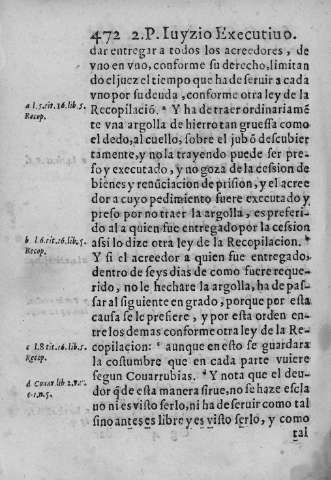 472 2.P. Iuyzio Executiuo.
dar entregar a todos los acreedores, de
vno en vno, conforme su derecho, limitan
do el juez el tiempo que ha de seruir a cada
vno por su deuda, conforme otra ley de la
a l.5.tit.16.lib.5.
Recop.
Recopilació. ª Y ha de traer ordinariamé
te vna argolla de hierro tan gruessa como
el dedo, al cuello, sobre el jubó descubier
tamente, y no la trayendo puede ser pre-
so y executado, y no goza de la cession de
bienes y renúciacion de prision, y el acree
dor a cuyo pedimiento fuere executado y
preso por no traer la argolla, es preferi-
do al a quien fue entregado por la cession
b l.6.tit.16.lib.5.
Recop.
assi lo dize otra ley de la Recopilacion. b
Y si el acreedor a quien fue entregado,
dentro de seys dias de como fuere reque-
rido, no le hechare la argolla, ha de pas-
sar al siguiente en grado, porque por esta
causa se le prefiere, y por esta orden en-
tre los demas conforme otra ley de la Re-
c l.8 tit.16.lib.5.
Recop.
copilacion: c aunque en esto se guardara
la costumbre que en cada parte vuiere
d Couar. lib 2.
segun Couarrubias. d Y nota que el deu-
dor q̃ de esta manera sirue, no se haze escla
uo ni es visto serlo, ni ha de seruir como tal
sino antes es libre y es visto serlo, y como
tal